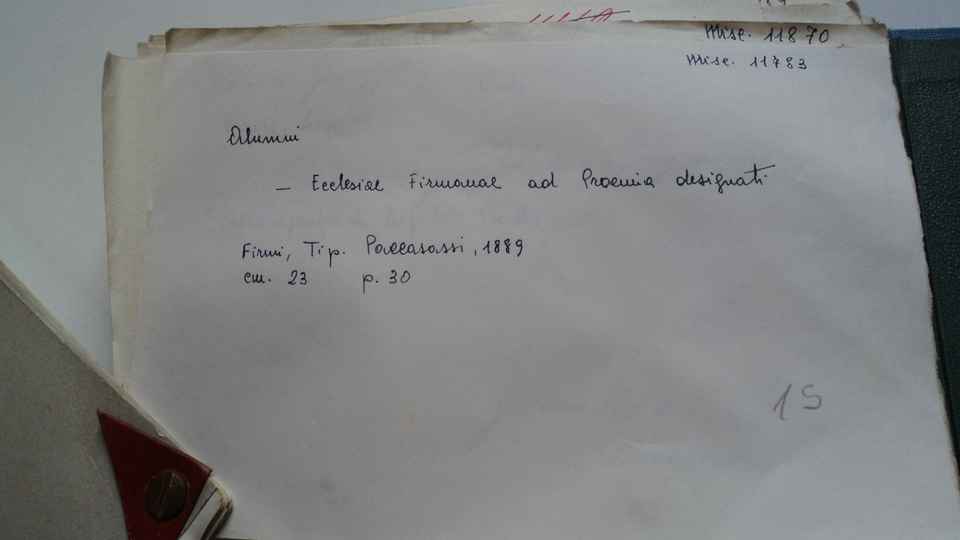 Misc. 11870
Misc. 11783
Alumni
— Ecclesiae Firmanae ad Proemia designati
Firmi, Tip. Paccasassi, 1889
cm. 23 p. 30
15